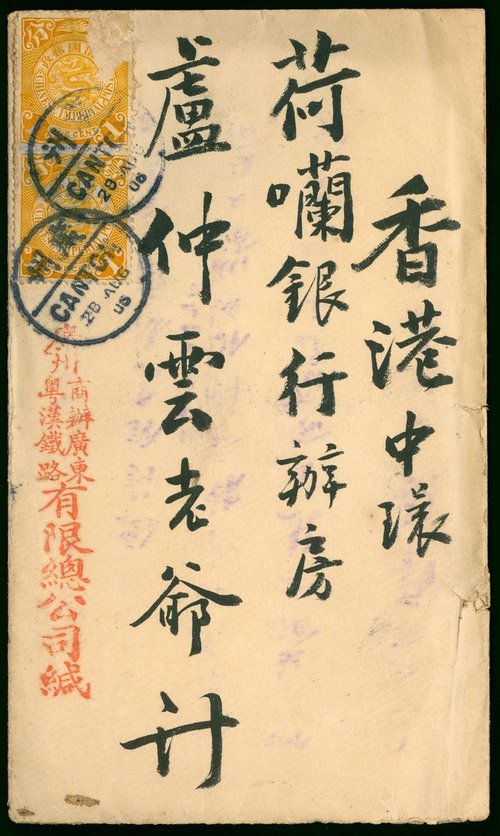 香港中環
荷囒銀行辦房
盧仲雲老爺升
廣州
商辦廣東
粵漢鐵路
有限總公司緘
分
1
CANTON
28 AUG
CANTON
28 AUG